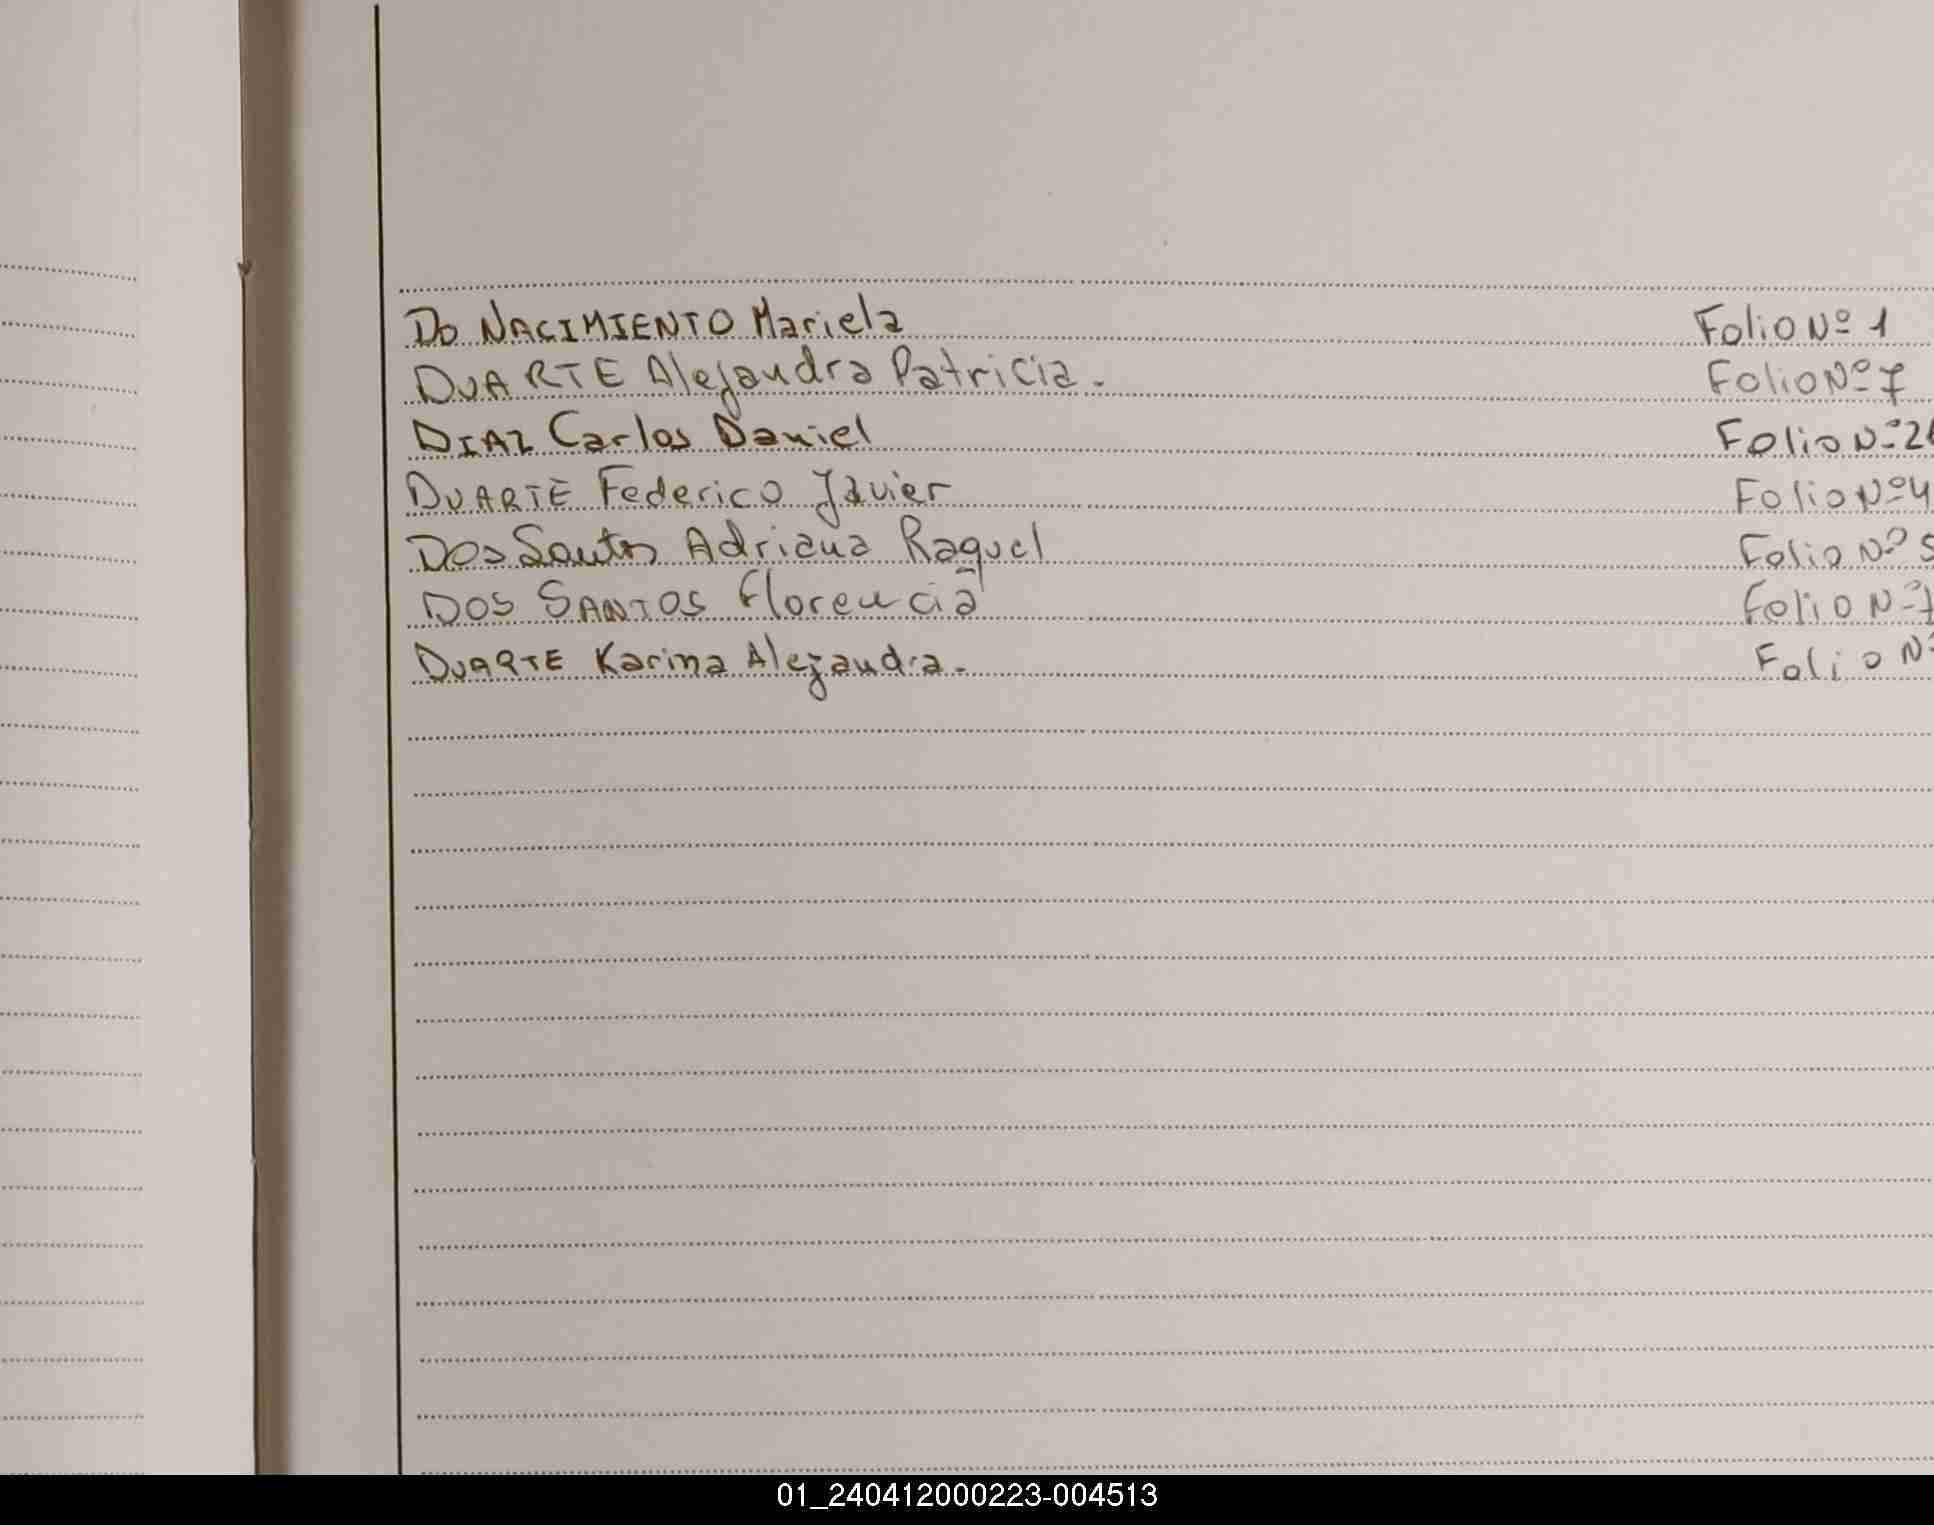 Do NACIMIENTO Mariela Folio Nº 1
DUARTE Alejandra Patricia. Folio Nº 7
DIAZ Carlos Daniel Folio Nº
DUARTE Federico Javier Folio Nº
Dos Santos Adriana Raquel Folio Nº
DOS SANTOS Florencia Folio Nº
DUARTE Karina Alejandra. Folio Nº
01_240412000223-004513